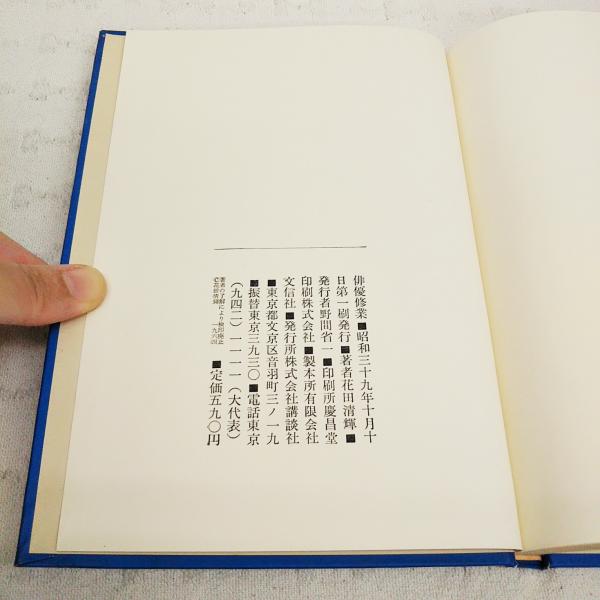 俳優修業■昭和三十九年十月十
日第一刷発行■著者花田清輝■
発行者野間省一■印刷所慶昌堂
印刷株式会社■製本所有限会社
文信社■発行所株式会社講談社
■東京都文京区音羽町三ノ一九
■振替東京三九三〇■電話東京
(九四二)一一一一(大代表)
■定価五九〇円
著者の了解により検印廃止
©花田清輝 一九六四